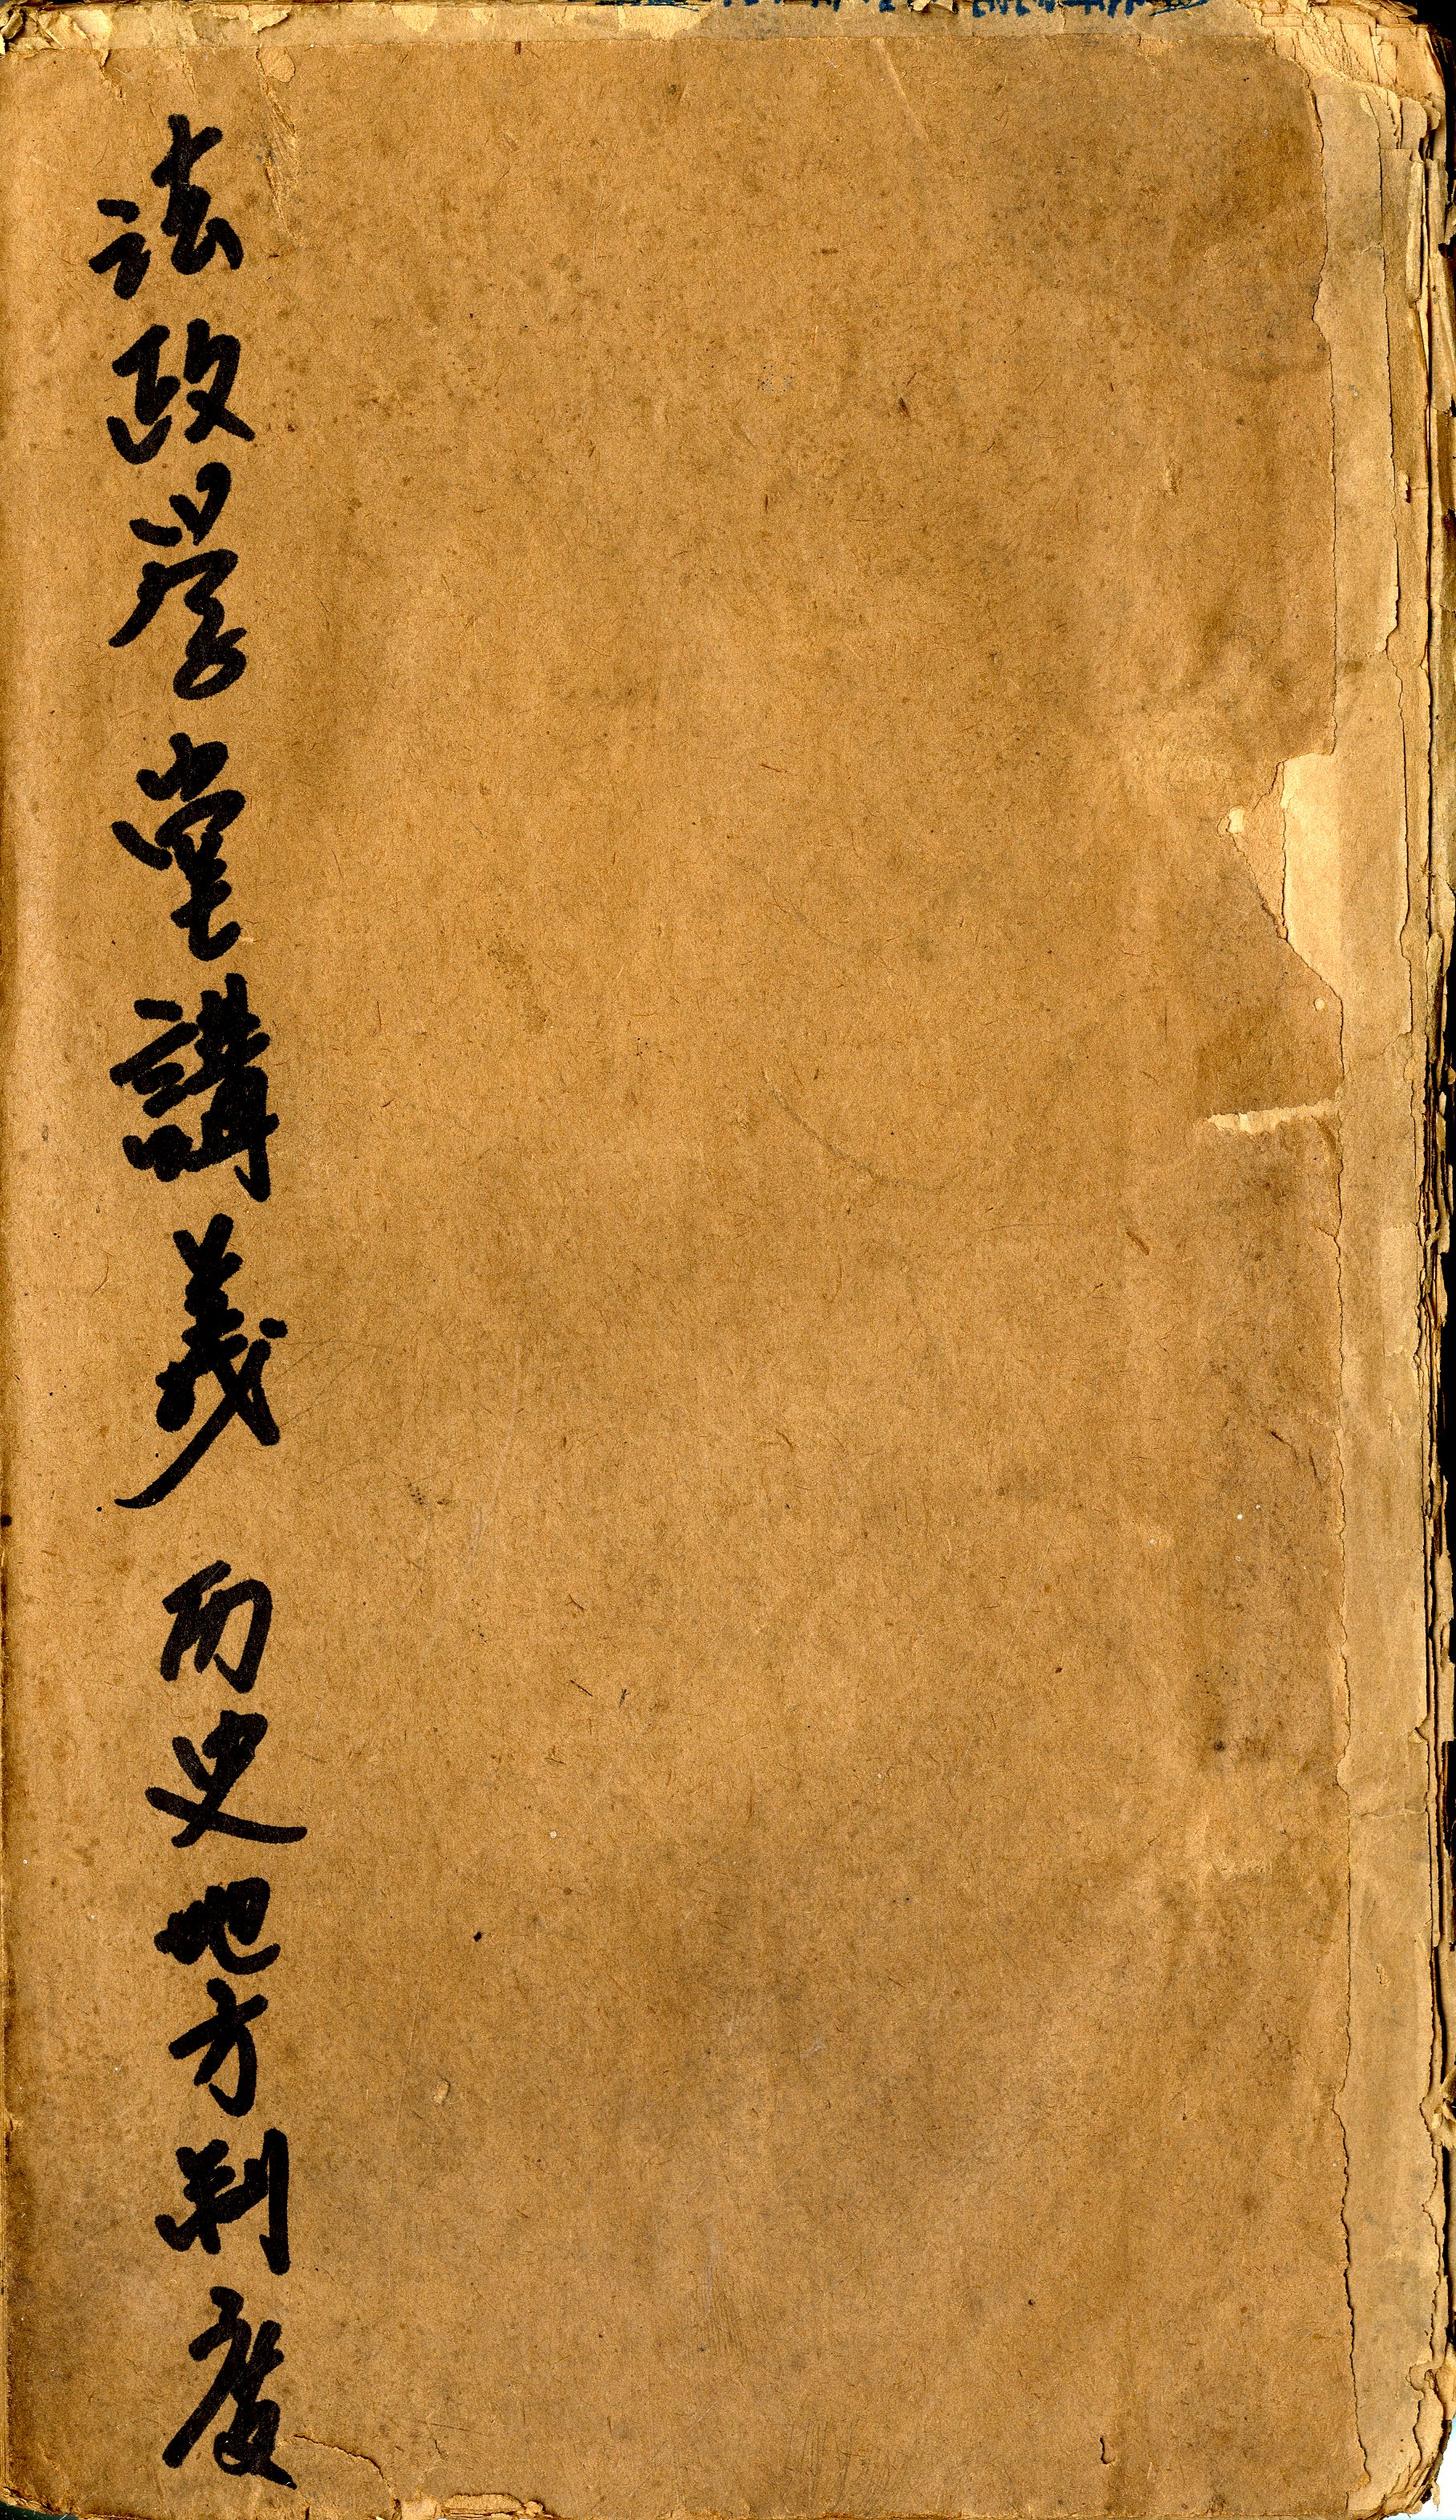 法政學堂講義 历史地方制度